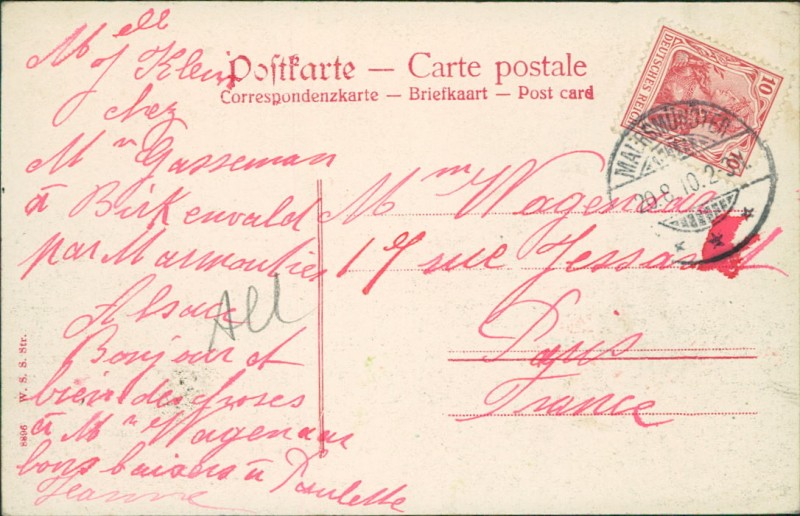 Postkarte — Carte postale
Correspondenzkarte — Briefkaart — Post card
DEUTSCHES REICH
10
MAURSMÜNSTER
20.8.10.2-3N.
* * *
Mell
J Klein
chez
Mr Gasseman
à Birkenvald
par Marmoutier
Alsace
Bonjour et
bien des choses
à Mr Wagenaar
bons baisers à Paulette
Jeanne
All
Mm Wagenaar
17 rue Jessaint
Paris
France
8896 W. S. S. Str.